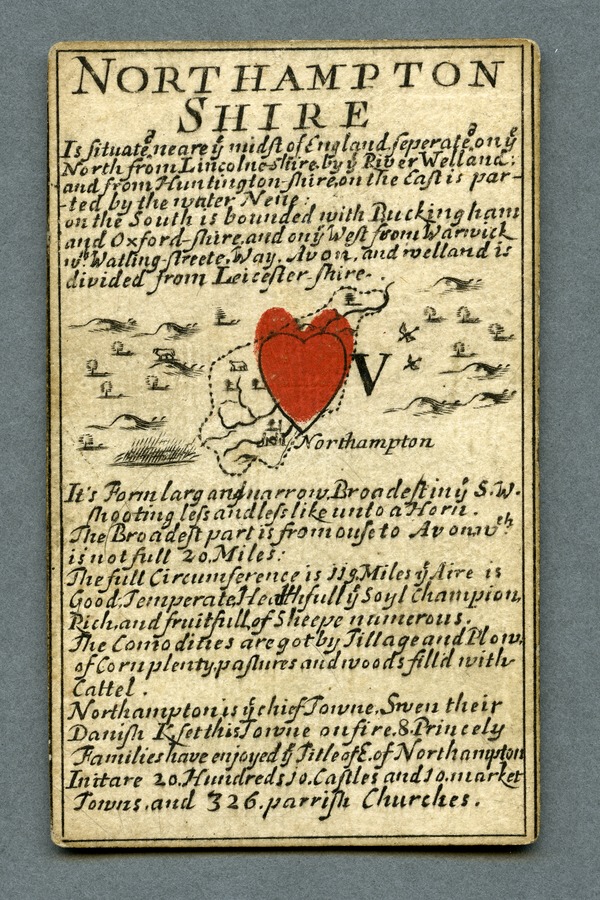 NORTHAMPTON
SHIRE
Is situate neare yͤ midst of England, seperated on yͤ
North from Lincolne-shire, by yͤ River Welland:
and from Huntington-shire, on the East is par-
-ted by the water Nene:
on the South is bounded with Buckingham
and Oxford-shire, and on yͤ West from Warwick
wᵗʰ Watling-streete, Way. Avon, and welland is
divided from Leicester-shire.
V
Northampton
It's Form larg and narrow, Broadest in yͤ S.W.
shooting less and less like unto a Horn.
The Broadest part is from ouse to Avon wᶜʰ
is not full 20, Miles:
The full Circumference is 119, Miles yͤ Aire is
Good, Temperate, Healthfull yͤ Soyl Champion,
Rich, and fruitfull, of Sheepe numerous.
The Comodities are got by Tillage and Plow,
of Corn plenty, pastures and woods fill'd with
Cattel.
Northampton is yͤ chief Towne. Swen their
Danish K. set this Towne on fire. 8. Princely
Families have enjoyed yͤ Title of E. of Northampton
In it are 20. Hundreds 10. Castles and 10. market
Towns, and 326. parrish Churches.